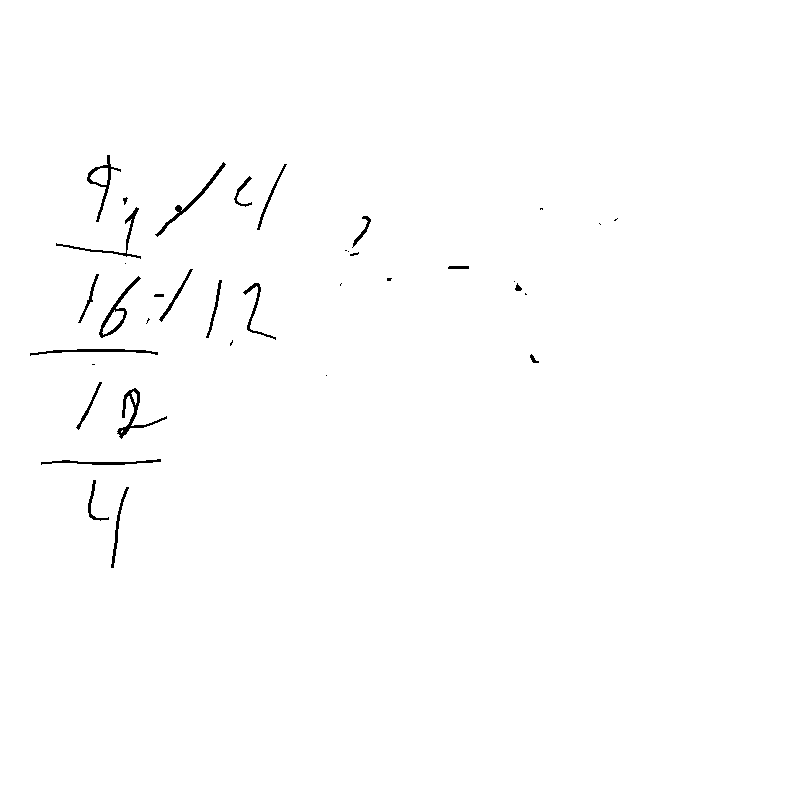 9.1 / 4 ?
16 / 12
12
4